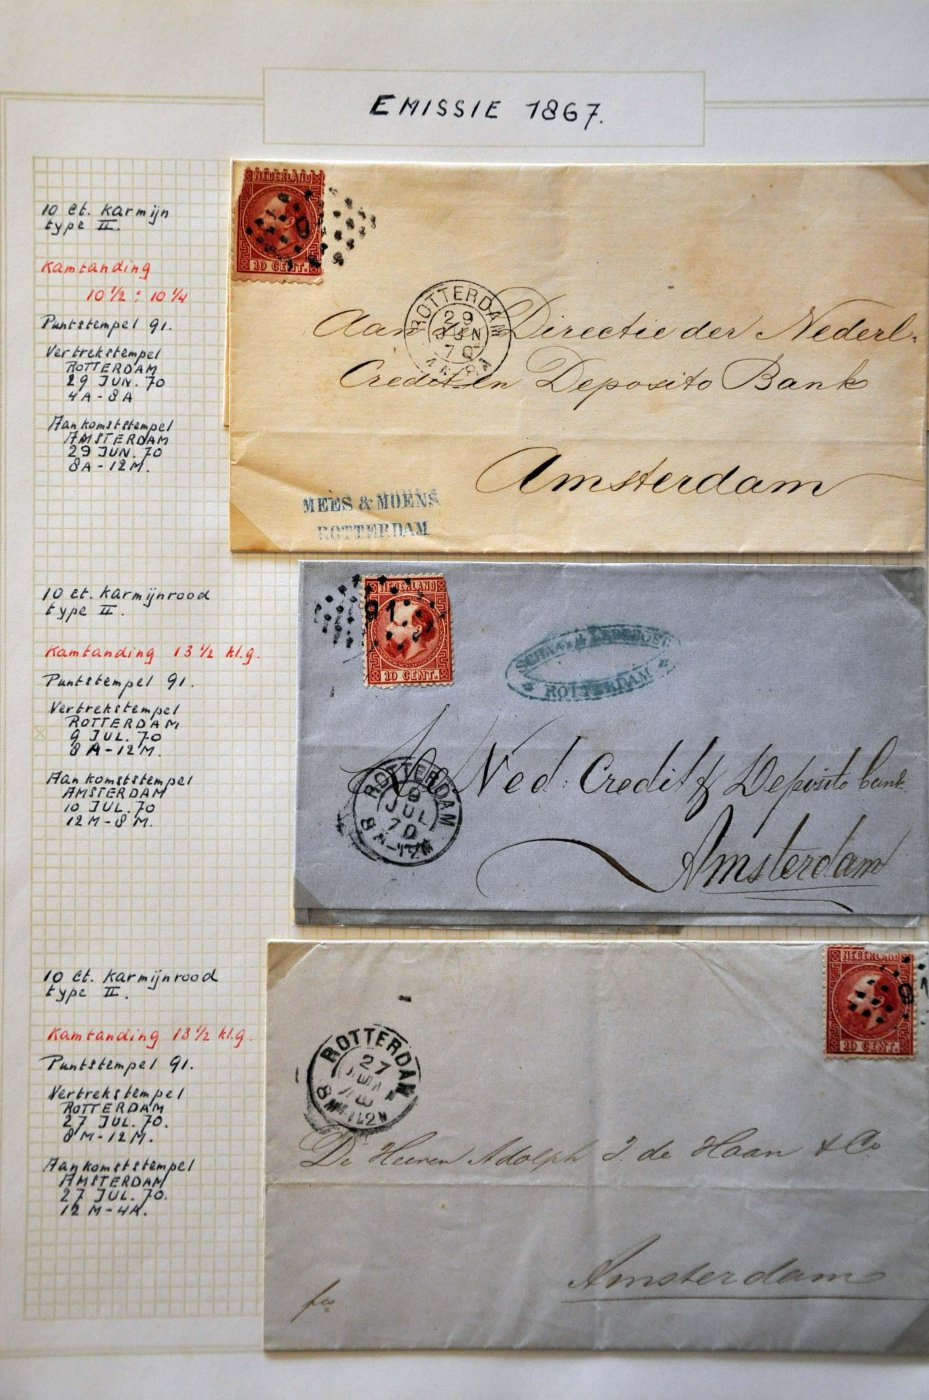 EMISSIE 1867.
10 ct. karmijn
type II.
Kamtanding
10 1/2 : 10 1/4
Puntstempel 91.
Vertrekstempel
ROTTERDAM
29 JUN. 70
4A-8A
Aankomststempel
AMSTERDAM
29 JUN. 70
8A-12M.
NEDERLAND
10 CENT.
9
ROTTERDAM
29
JUN
70
Aan Directie der Nederl.
Credit en Deposito Bank
Amsterdam
MEES & MOENS
ROTTERDAM
10 ct. karmijnrood
type II.
Kamtanding 13 1/2 kl.g.
Puntstempel 91.
Vertrekstempel
ROTTERDAM
9 JUL. 70
8A-12M.
Aankomststempel
AMSTERDAM
10 JUL. 70
12M-8M.
NEDERLAND
91
10 CENT.
ROTTERDAM
ROTTERDAM
9
JUL
70
8A-12M
Ned: Credit & Deposito bank
Amsterdam
10 ct. karmijnrood
type II.
Kamtanding 13 1/2 kl.g.
Puntstempel 91.
Vertrekstempel
ROTTERDAM
27 JUL. 70.
8M-12M.
Aankomststempel
AMSTERDAM
27 JUL. 70.
12M-4A.
NEDERLAND
91
10 CENT.
ROTTERDAM
27
De Heeren Adolph J. de Haan & Co
Amsterdam